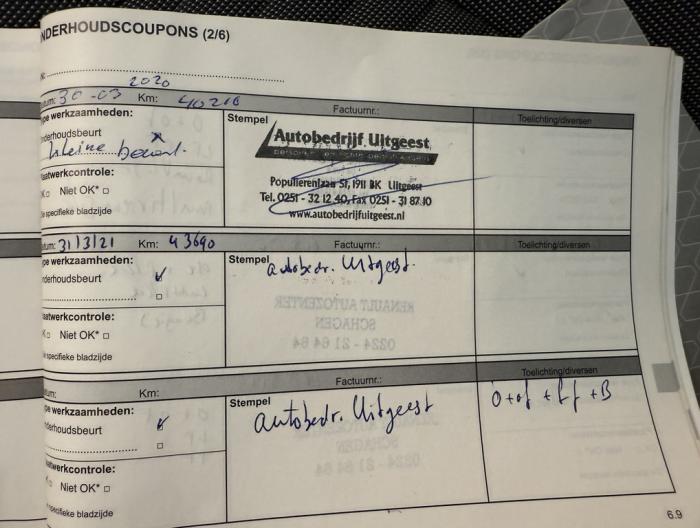 NDERHOUDSCOUPONS (2/6)
2020
tum: 30-03 Km: 40216 Factuurnr.: Toelichting/diversen
pe werkzaamheden:
derhoudsbeurt
kleine beurt.
Stempel
Autobedrijf Uitgeest
Populierenlaan 51, 1911 BK Uitgeest
Tel. 0251 - 32 12 40, Fax 0251 - 31 87 10
www.autobedrijfuitgeest.nl
aatwerkcontrole:
Niet OK*
e specifieke bladzijde
tum: 31/3/21 Km: 43690 Factuurnr.: Toelichting/diversen
pe werkzaamheden:
derhoudsbeurt
Stempel autobedr. Uitgeest.
RENAULT AUTOZENTER
SCHAGEN
0224 - 21 64 84
aatwerkcontrole:
Niet OK*
e specifieke bladzijde
tum: Km: Factuurnr.: Toelichting/diversen
pe werkzaamheden:
derhoudsbeurt
Stempel
autobedr. Uitgeest
O+of + Lf + B
aatwerkcontrole:
Niet OK*
specifieke bladzijde
6.9